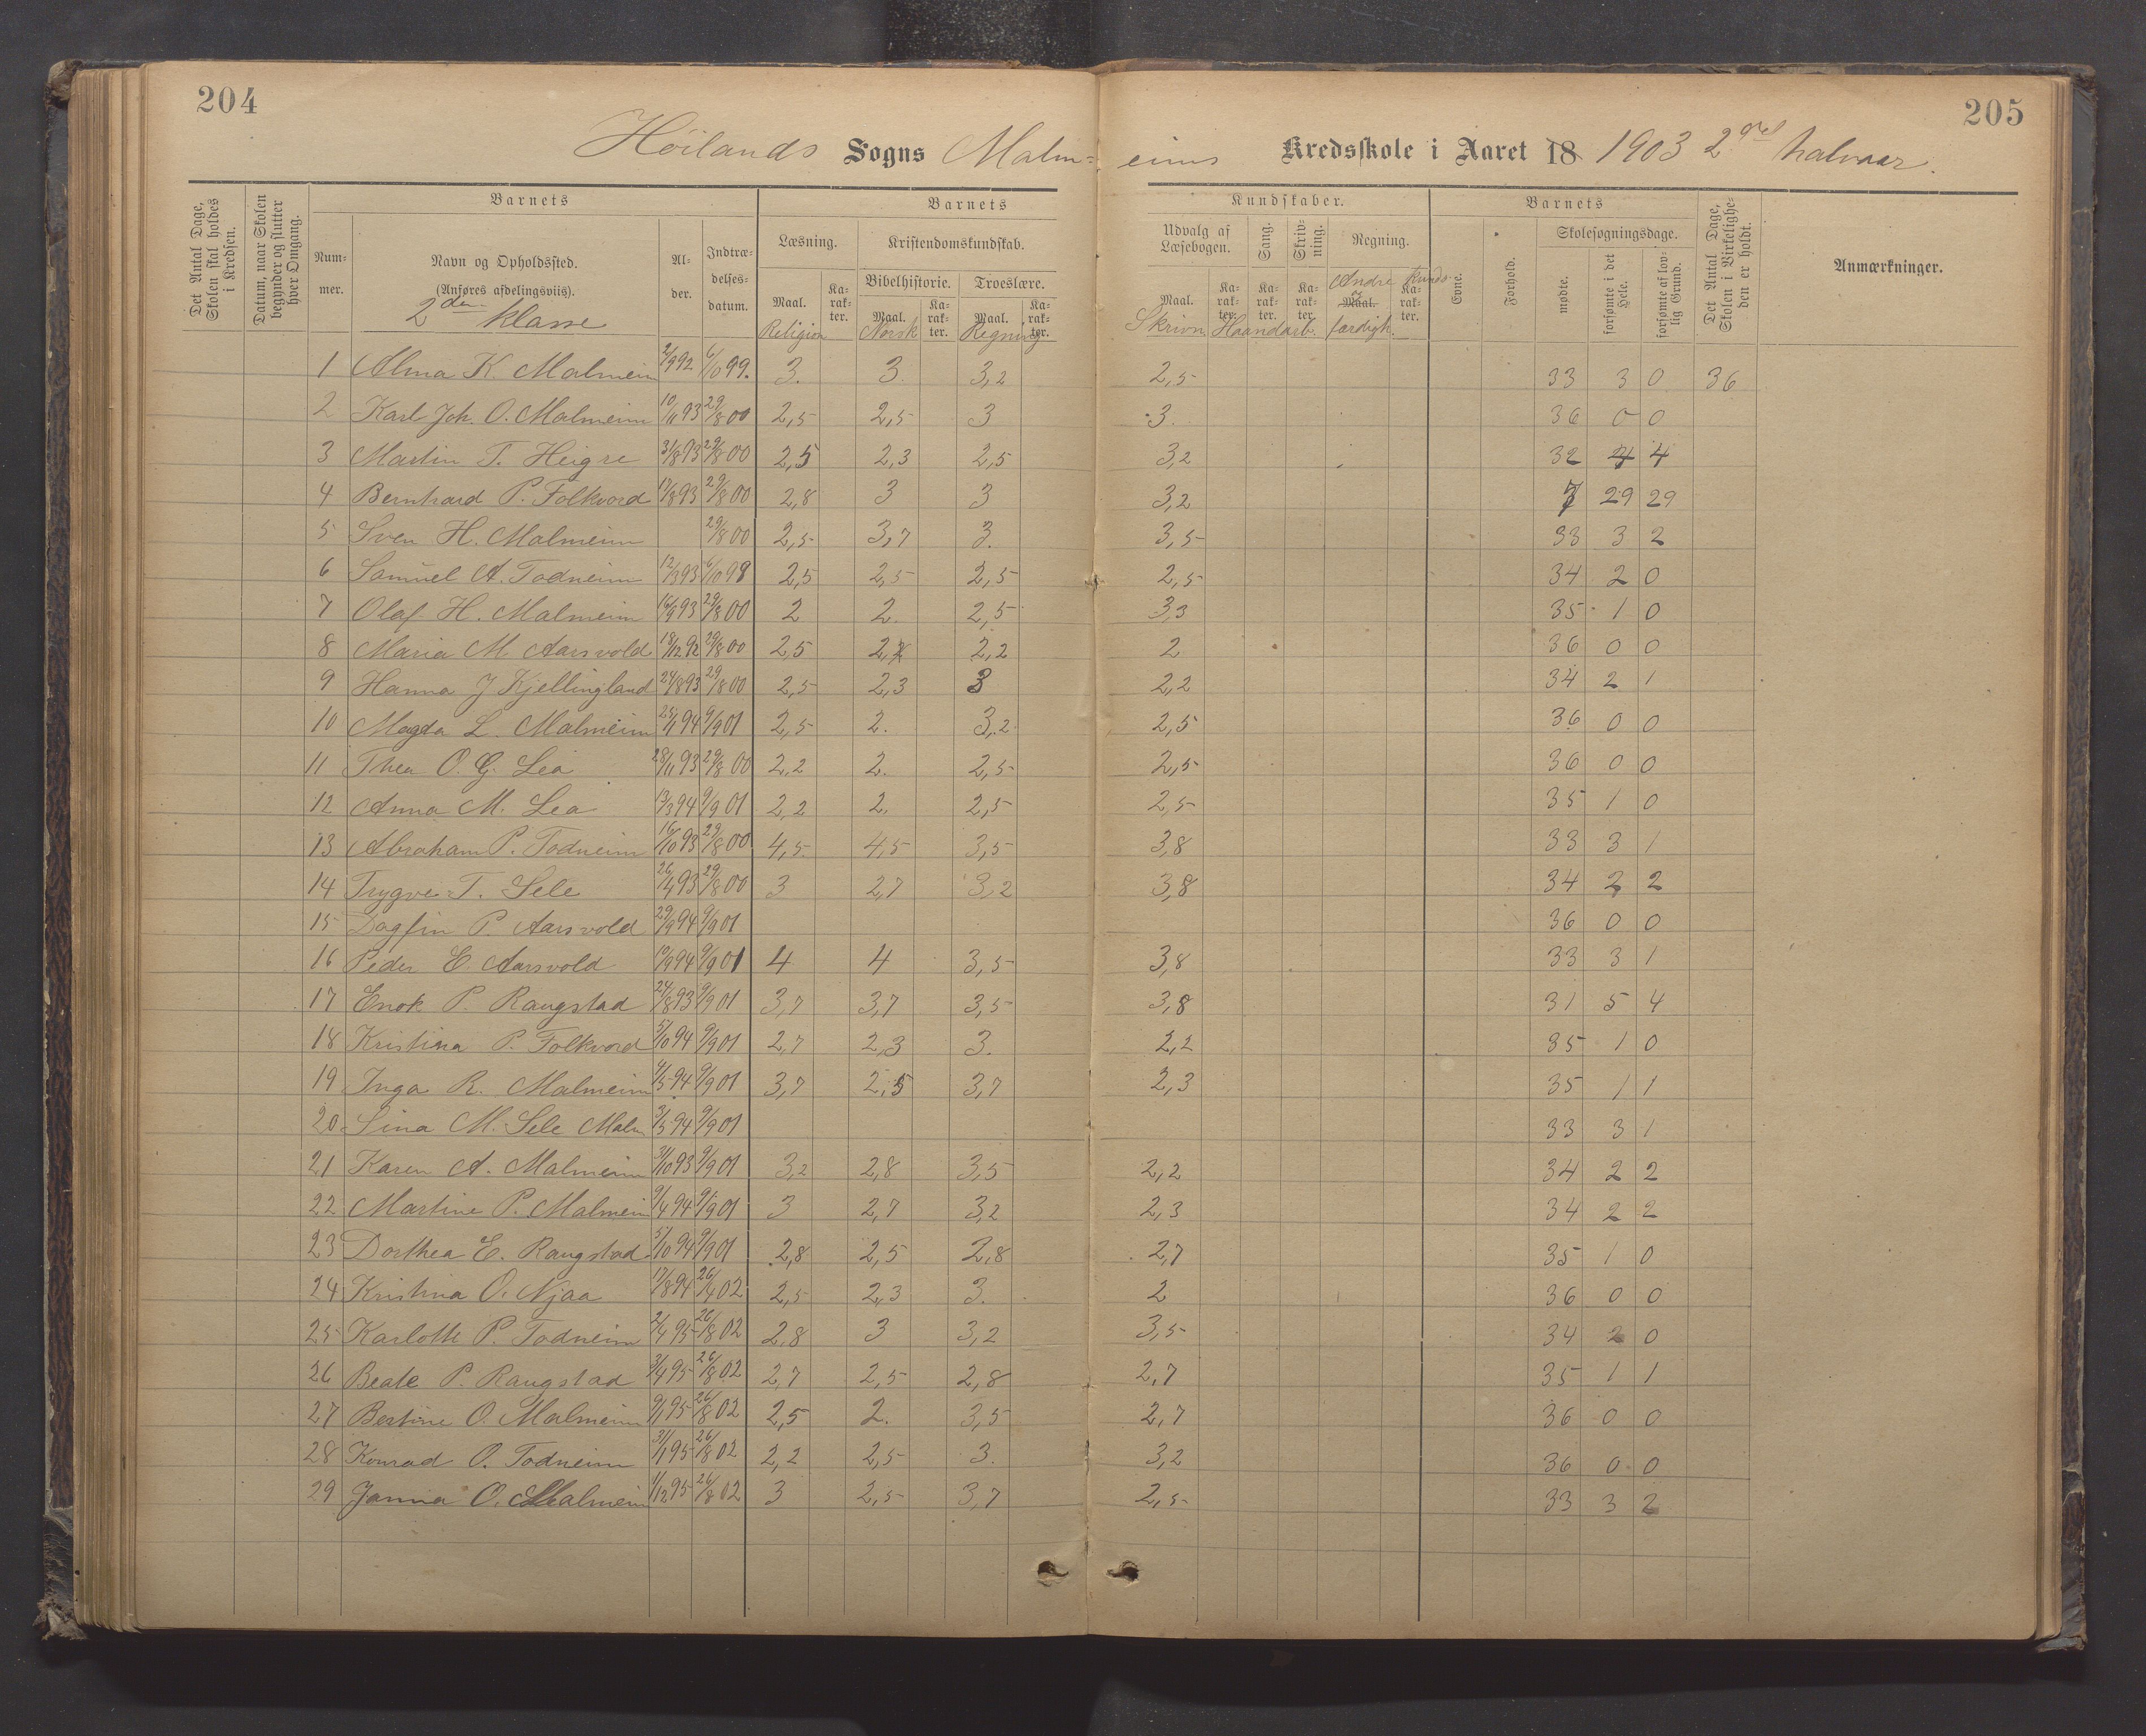 204
205
Höilands Sogns Malm= eims Kredsskole i Aaret 18 1903 2det halvaar.
Det Antal Dage, Skolen skal holdes i Kredsen.
Datum, naar Skolen begynder og slutter hver Omgang.
Barnets
Barnets
Kundskaber.
Barnets
Det Antal Dage, Skolen i Virkelighe- den er holdt.
Anmærkninger.
Num- mer.
Navn og Opholdssted. (Anføres afdelingsviis).
2den klasse
Al- der.
Indtræ- delses- datum.
Læsning.
Kristendomskundskab.
Udvalg af Læsebogen.
Sang.
Skriv- ning.
Regning.
Evne.
Forhold.
Skolesøgningsdage.
Bibelhistorie.
Troeslære.
Maal.
Ka- rak- ter.
Maal.
Ka- rak- ter.
Maal.
Ka- rak- ter.
Maal.
Ka- rak- ter.
Ka- rak- ter.
Ka- rak- ter.
Maal.
Ka- rak- ter.
mødte.
forsømte i det Hele.
forsømte af lov- lig Grund.
Religion Norsk Regning Skrivn. Haandarb. Andre Kunds- færdigh.
1 Alma K. Malmeim 2/9 92 6/10 99. 3. 3. 3,2 2,5 33 3 0 36
2 Karl Joh. O. Malmeim 10/11 93 29/8 00 2,5 2,5 3 3. 36 0 0
3 Martin T. Heigre 31/8 93 29/8 00 2,5 2,3 2,5 3,2 32 4 4
4 Bernhard P. Folkvord 17/8 93 29/8 00 2,8 3 3 3,2 7 29 29
5 Sven H. Malmeim 29/8 00 2,5 3,7 3. 3,5 33 3 2
6 Samuel A. Todneim 12/3 93 6/10 98 2,5 2,5 2,5 2,5 34 2 0
7 Olaf H. Malmeim 16/9 93 29/8 00 2 2. 2,5 3,3 35 1 0
8 Maria M Aarsvold 18/12 92 29/8 00 2,5 2,2 2,2 2 36 0 0
9 Hanna J Kjellingland 24/8 93 29/8 00 2,5 2,3 3 2,2 34 2 1
10 Magda L. Malmeim 25/1 94 9/9 01 2,5 2. 3,2 2,5 36 0 0
11 Thea O. G. Lea 28/11 93 29/8 00 2,2 2. 2,5 2,5 36 0 0
12 Anna M. Lea 13/3 94 9/9 01 2,2 2. 2,5 2,5 35 1 0
13 Abraham P. Todneim 16/10 93 29/8 00 4,5 4,5 3,5 3,8 33 3 1
14 Trygve T. Sele 26/4 93 29/8 00 3 2,7 3,2 3,8 34 2 2
15 Dagfin P. Aarsvold 29/9 94 9/9 01 36 0 0
16 Peder E. Aarsvold 10/9 94 9/9 01 4 4 3,5 3,8 33 3 1
17 Enok P. Raugstad 24/8 93 9/9 01 3,7 3,7 3,5 3,8 31 5 4
18 Kristina P. Folkvord 5/10 94 9/9 01 2,7 2,3 3. 2,2 35 1 0
19 Inga R. Malmeim 4/5 94 9/9 01 3,7 2,5 3,7 2,3 35 1 1
20 Sina M. Sele Malm 3/3 94 9/9 01 33 3 1
21 Karen A. Malmeim 31/10 93 9/9 01 3,2 2,8 3,5 2,2 34 2 2
22 Martine P. Malmeim 9/4 94 9/9 01 3 2,7 3,2 2,3 34 2 2
23 Dorthea E. Raugstad 5/10 94 9/9 01 2,8 2,5 2,8 2,7 35 1 0
24 Kristina O. Njaa 17/8 94 26/4 02 2,5 2,3 3. 2 36 0 0
25 Karlotte P. Todneim 2/4 95 26/8 02 2,8 3 3,2 3,5 34 2 0
26 Beate P. Raugstad 3/4 95 26/8 02 2,7 2,5 2,8 2,7 35 1 1
27 Bertine O. Malmeim 9/1 95 26/8 02 2,5 2. 3,5 2,7 36 0 0
28 Konrad O. Todneim 31/1 95 26/8 02 2,2 2,5 3. 3,2 36 0 0
29 Janna O. Malmeim 1/12 95 26/8 02 3 2,5 3,7 2,5 33 3 2